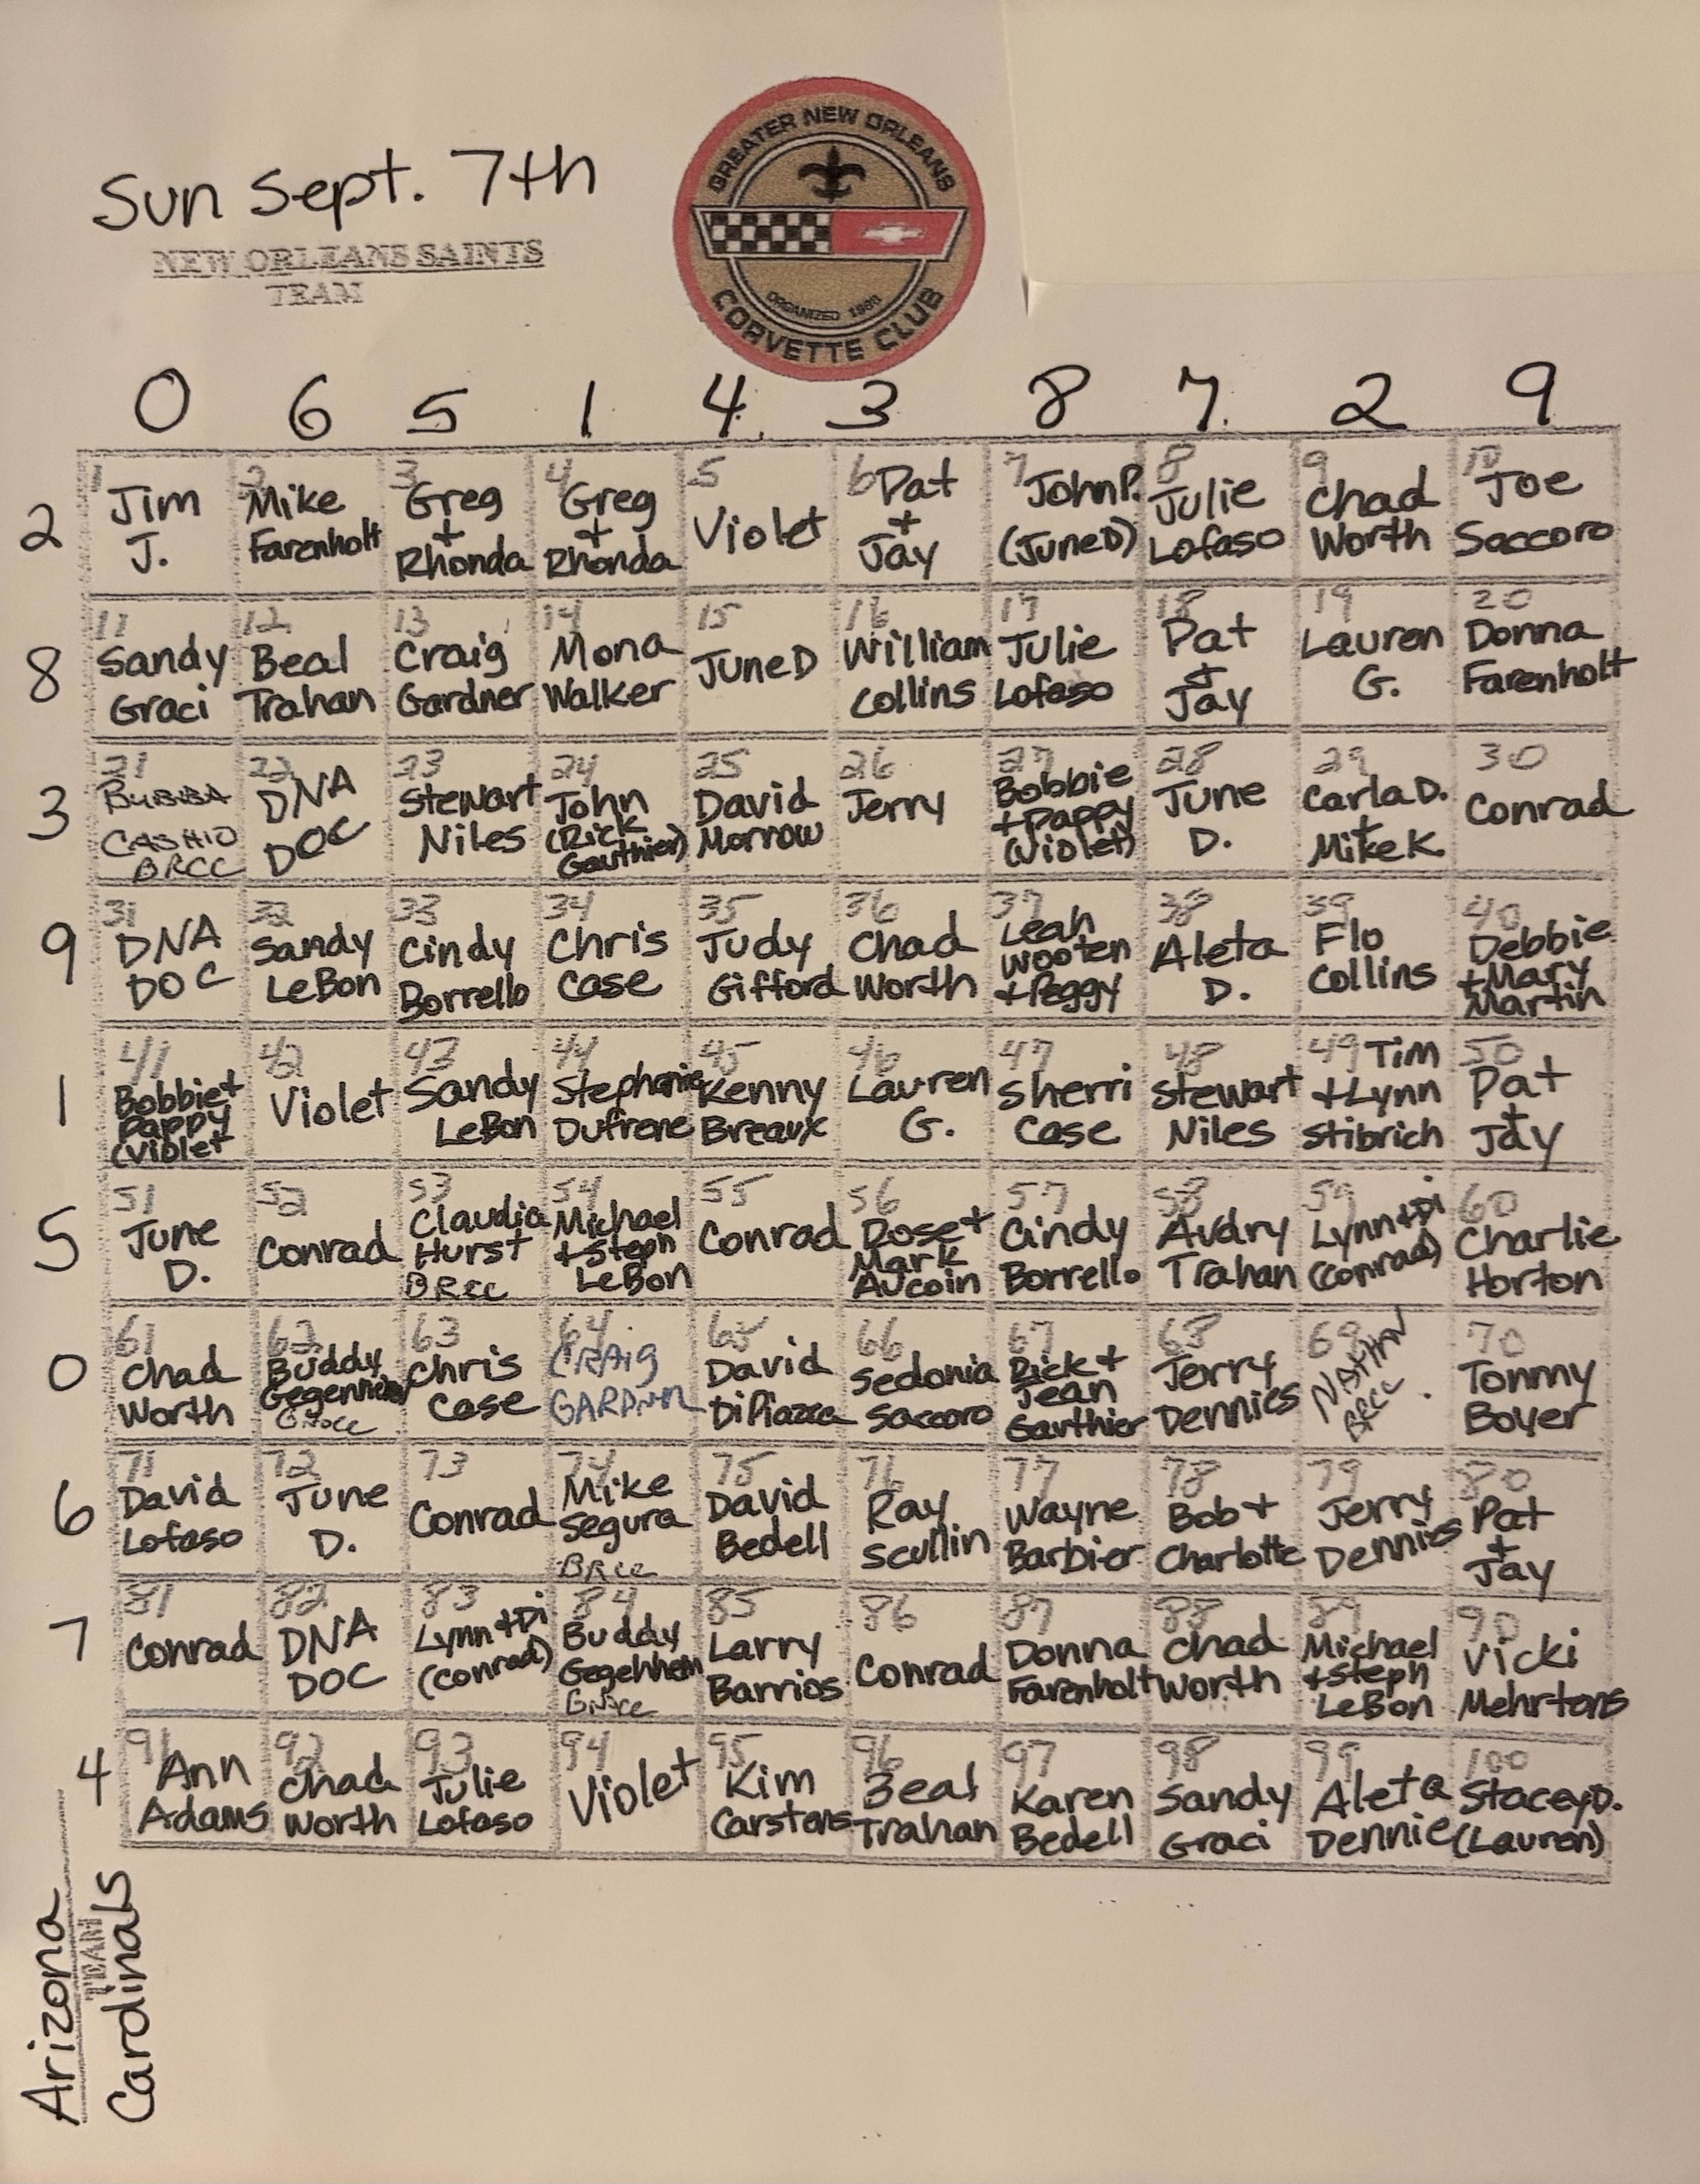 Sun Sept. 7th
NEW ORLEANS SAINTS
TEAM
GREATER NEW ORLEANS
ORGANIZED
CORVETTE CLUB
0 6 5 1 4 3 8 7 2 9
2
1 Jim J.
2 Mike Farenholt
3 Greg + Rhonda
4 Greg + Rhonda
5 Violet
6 Pat + Jay
7 John P. (June D)
8 Julie Lofaso
9 Chad Worth
10 Joe Saccoro
8
11 Sandy Graci
12 Beal Trahan
13 Craig Gardner
14 Mona Walker
15 June D
16 William Collins
17 Julie Lofaso
18 Pat & Jay
19 Lauren G.
20 Donna Farenholt
3
21 BUBBA CASHIO BRCC
22 DNA DOC
23 Stewart Niles
24 John (Rick Gauthier)
25 David Morrow
26 Jerry
27 Bobbie + Pappy (Violet)
28 June D.
29 Carla D. + Mike K.
30 Conrad
9
31 DNA DOC
32 Sandy LeBon
33 Cindy Borrello
34 Chris Case
35 Judy Gifford
36 Chad Worth
37 Leah Wooten + Peggy
38 Aleta D.
39 Flo Collins
40 Debbie + Mary Martin
1
41 Bobbie + Pappy (Violet
42 Violet
43 Sandy LeBon
44 Stephanie Dufrene
45 Kenny Breaux
46 Lauren G.
47 Sherri Case
48 Stewart Niles
49 Tim + Lynn Stibrich
50 Pat + Jay
5
51 June D.
52 Conrad
53 Claudia Hurst BRCC
54 Michael + Steph LeBon
55 Conrad
56 Rose + Mark Aucoin
57 Cindy Borrello
58 Avdry Trahan
59 Lynn + Di (Conrad)
60 Charlie Horton
0
61 Chad Worth
62 Buddy
63 Chris Case
64 CRAIG
65 David DiPiazza
66 Sedonia Saccoro
67 Rick + Jean Gauthier
68 Jerry Dennies
69 NATHAN BRCC
70 Tommy Boyer
6
71 David Lofaso
72 June D.
73 Conrad
74 Mike Segura BRCC
75 David Bedell
76 Ray Scullin
77 Wayne Barbier
78 Bob + Charlotte
79 Jerry Dennies
80 Pat + Jay
7
81 Conrad
82 DNA DOC
83 Lynn + Di (Conrad)
84 Buddy
85 Larry Barrios
86 Conrad
87 Donna Farenholt
88 Chad Worth
89 Michael + Steph LeBon
90 Vicki Mehrtens
4
91 Ann Adams
92 Chad Worth
93 Julie Lofaso
94 Violet
95 Kim Carstens
96 Beal Trahan
97 Karen Bedell
98 Sandy Graci
99 Aleta Dennie
100 Stacey D. (Lauren)
Arizona
TEAM
Cardinals